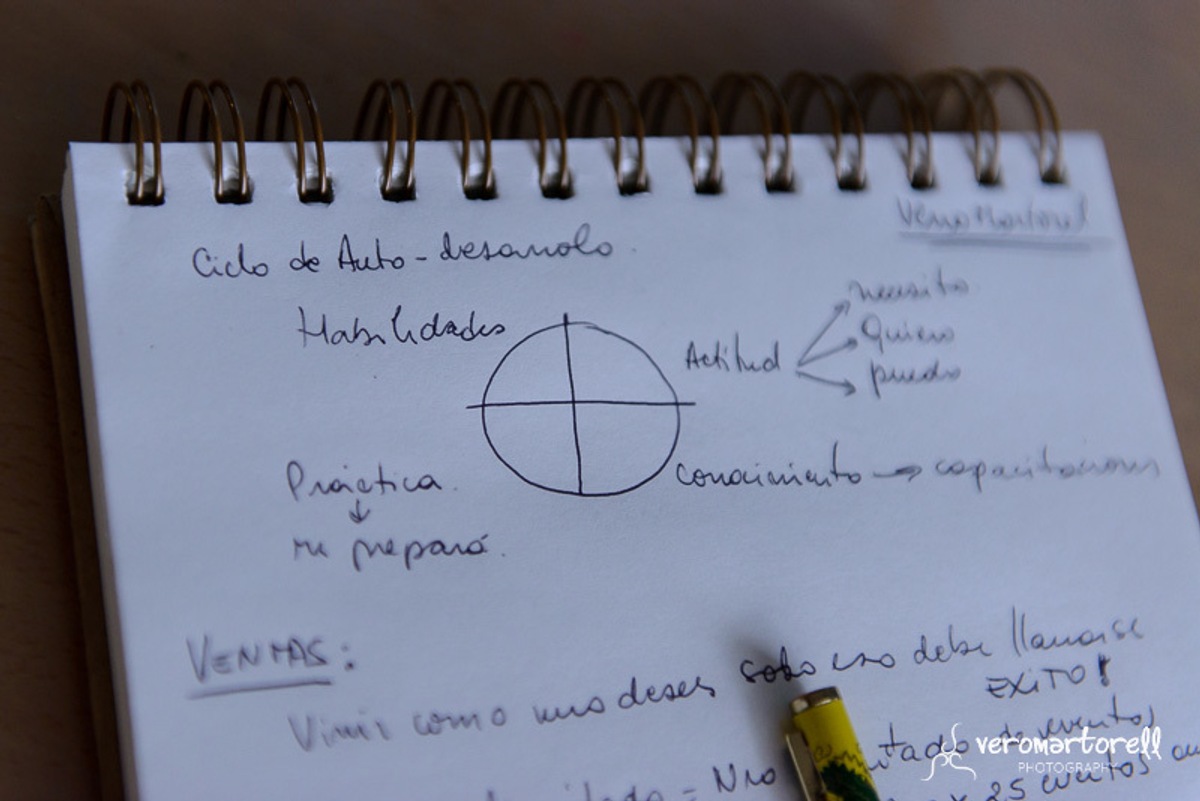 Vero Martorell
Ciclo de Auto-desarrollo
Habilidades
Actitud
necesito
Quiero
puedo
Práctica.
↓
me prepará.
Conocimiento → capacitaciones
VENTAS:
Vivir como uno desea solo eso debe llamarse
EXITO!
de eventos
= No
25 eventos
veromartorell
PHOTOGRAPHY